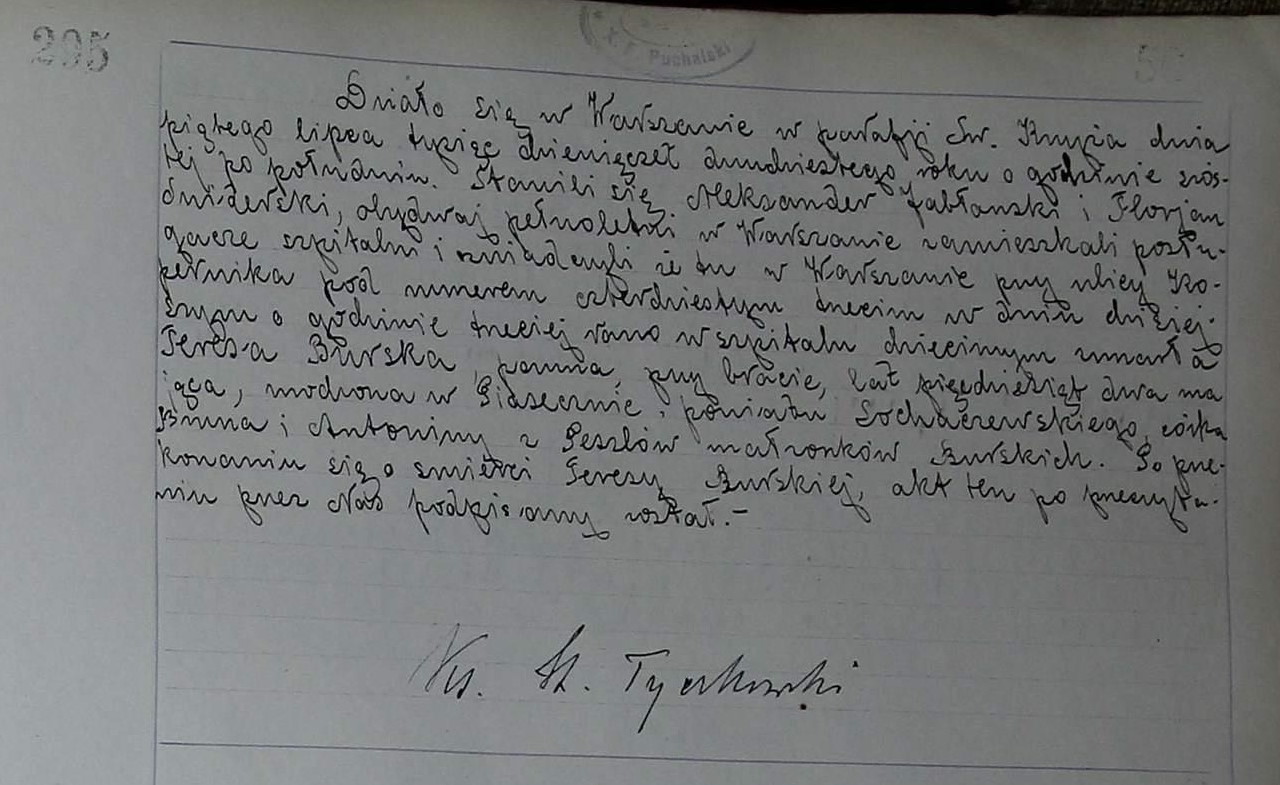 295
Puchalski
Działo się w Warszawie w parafji Św. Krzyża dnia
piątego lipca tysiąc dziewięćset dwudziestego roku o godzinie szós-
tej po południu. Stawili się Aleksander Jabłonski i Florjan
Świderski, obydwaj pełnoletni w Warszawie zamieszkali posłu-
gacze szpitalni i oświadczyli że tu w Warszawie przy ulicy Ko-
pernika pod numerem czterdziestym trzecim w dniu dzisiej-
szym o godzinie trzeciej rano w szpitalu dziecinnym umarła
Teresa Burska, panna, przy bracie, lat pięćdziesiąt dwa ma
jąca, urodzona w Piasecznie, powiatu Sochaczewskiego, córka
i Antoniny z Peszlów małżonków Burskich. Po prze-
konaniu się o śmierci Teresy Burskiej, akt ten po przeczyta-
niu przez Nas podpisany został.-
Ks. St. Tyczkowski